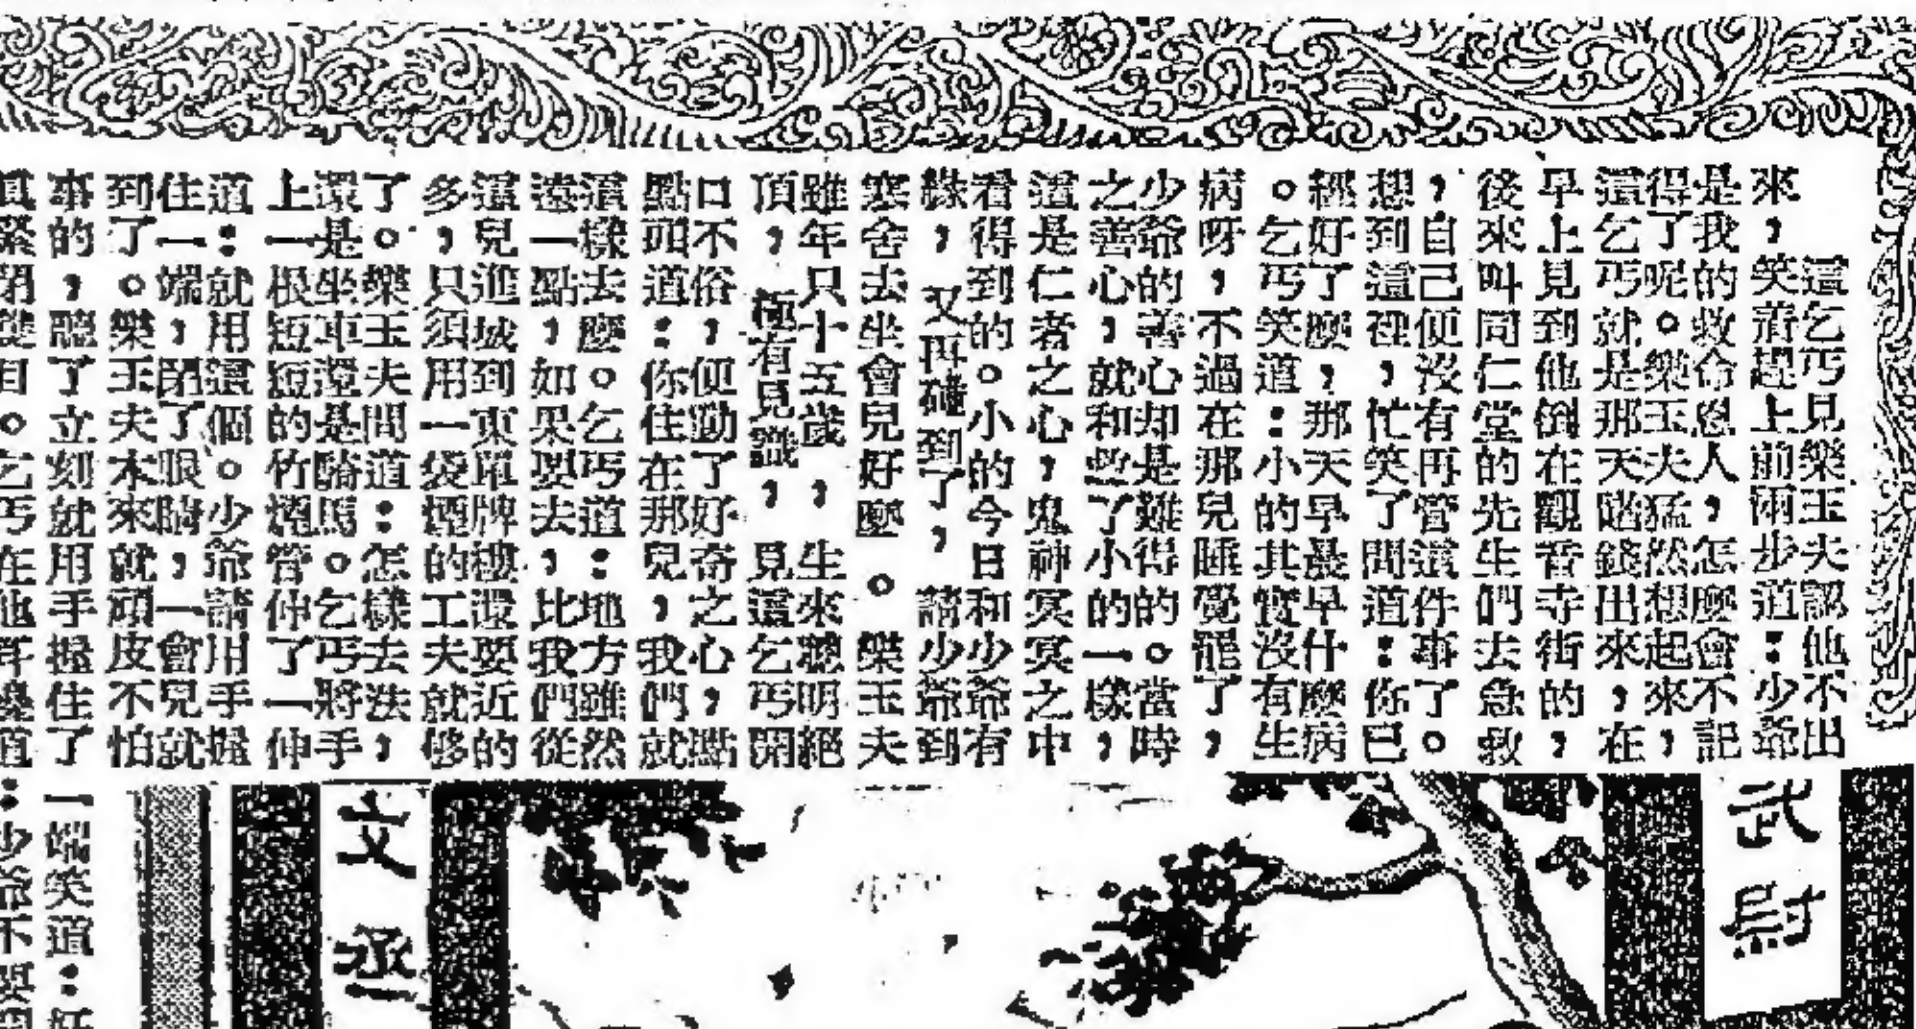 這乞丐見樂玉夫認他不出
來，笑着趕上前兩步道：少爺
是我的救命恩人，怎麼會不記
得了呢。樂玉夫猛然想起來，
這乞丐就是那天踏錢出來，在
早上見到他倒在觀音寺街的，
後來叫同仁堂的先生們去急救
，自己便沒有再管這件事了。
想到這裡，忙笑了問道：你已
經好了麼，那天早晨早什麼病
。乞丐笑道：小的其實沒有生
病呀，不過在那兒睡覺罷了，
少爺的善心却是難得的。當時
之善心，就和救了小的一樣，
這是仁者之心，鬼神冥冥之中
看得到的。小的今日和少爺有
緣，又再碰到了，請少爺到
寒舍去坐會兒好麼。樂玉夫
雖年只十五歲，生來聰明絕
頂，極有見識，見這乞丐開
口不俗，便動了好奇之心，點
點頭道：你住在那兒，我們就
這樣去麼。乞丐道：地方雖然
遠一點，如果要去，比我們從
這兒進城到東單牌樓還要近的
多，只須用一袋煙的工夫就够
了。樂玉夫問道：怎樣去法，
還是坐車還是騎馬。乞丐將手
上一根短短的竹煙管伸了一伸
道：就用這個。少爺請用手握
住一端，閉了眼睛，一會兒就
到了。樂玉夫本來就頑皮不怕
事的，聽了立刻就用手握住了
緊閉雙目。乞丐在他耳邊道
一端笑道：好
：少爺不要
武尉
文丞